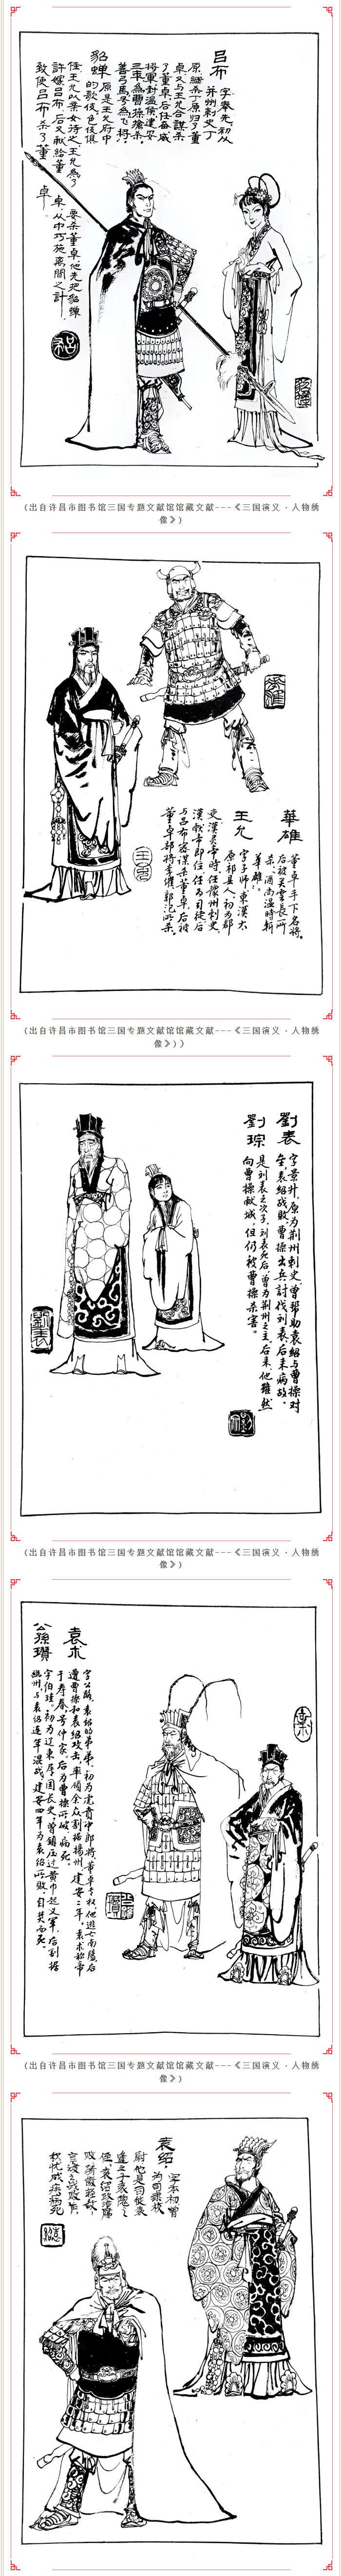 吕布
字奉先初从
并州刺史丁
原继杀丁原归了董
卓又与王允合谋杀
了董卓后任奋威
将军封温侯建安
三年为曹操擒杀
善弓马号为飞将
貂蝉
原是王允府中
的歌伎色伎俱
佳王允以亲女待之王允为了
要杀董卓他先把貂蝉
许嫁吕布后又献给董
卓从中巧施离间之计
致使吕布杀了董
卓。
(出自许昌市图书馆三国专题文献馆馆藏文献---《三国演义·人物绣
像》)
華雄
董卓手下名将。
后被关雲長所
杀
王允
字子师東漢太
原祁县人初为郡
吏漢灵帝时任豫州刺史
漢献帝即位任为司徒后
与吕布密谋杀董卓后被
董卓部将李傕郭汜所杀。
王允
(出自许昌市图书馆三国专题文献馆馆藏文献---《三国演义·人物绣
像》))
劉表
字景升原为荆州刺史曾帮助袁绍与曹操对
垒袁绍战败曹操出兵討伐刘表后来病故。
劉琮
是刘表之次子刘表死后曾为荆州之主后来他雖然
向曹操献城但仍被曹操杀害。
劉表
(出自许昌市图书馆三国专题文献馆馆藏文献---《三国演义·人物绣
像》)
袁术
字公路袁绍的弟弟初为虎贲中郎将董卓专权他逃亡南陽后
遭曹操和袁绍攻击率领余众割据揚州建安二年袁术称帝
于寿春号仲家后为曹操所破病死。
公孫瓚
字伯珪。初为辽東属国長史曾镇压过黄巾起义軍后割据
幽州与袁绍连年混战建安四年为袁绍所败自焚而死。
袁术
(出自许昌市图书馆三国专题文献馆馆藏文献---《三国演义·人物绣
像》)
袁绍
字本初曾
为司隶校
尉他是司徒袁
逢之子袁隗之
侄